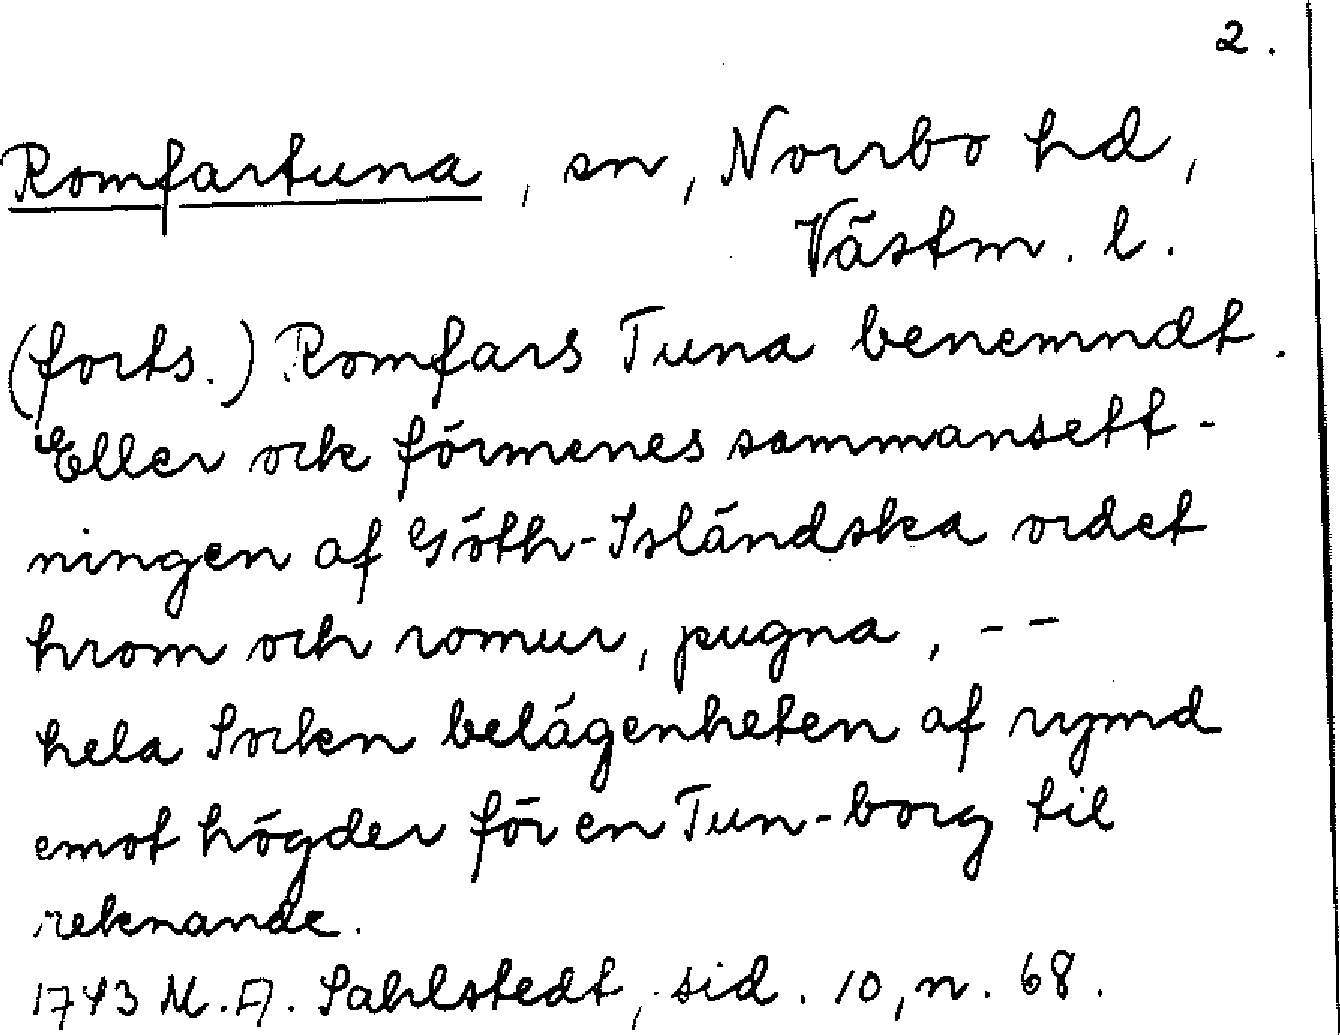 2.
Romfartuna, sn, Norrbo hd,
Västm. l.
(forts.) Romfars Tuna benemndt.
Eller ock förmenes sammansett-
ningen af Göth-Isländska ordet
hrom och romur, pugna, --
hela Socken belägenheten af rymd
emot högder för en Tun-borg til
reknande.
1743 M.A. Sahlstedt, sid. 10, n. 68.